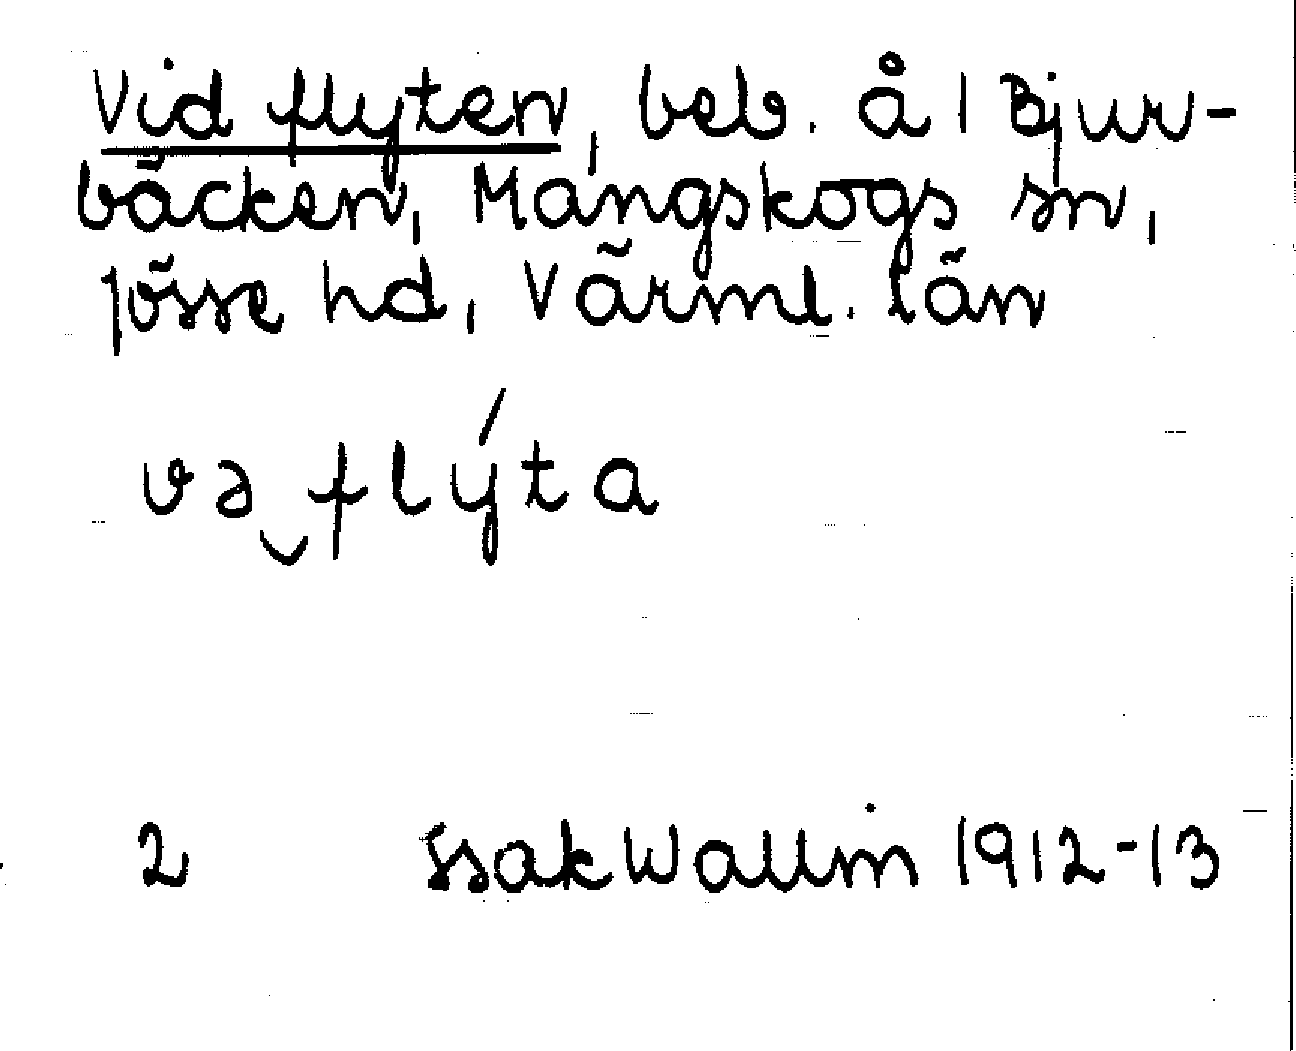 Vid flyten, beb. å 1 Bjur-
bäcken, Mangskogs sn,
Jösse hd, Värml. län
və‿flýta
2 Isak Wallin 1912-13